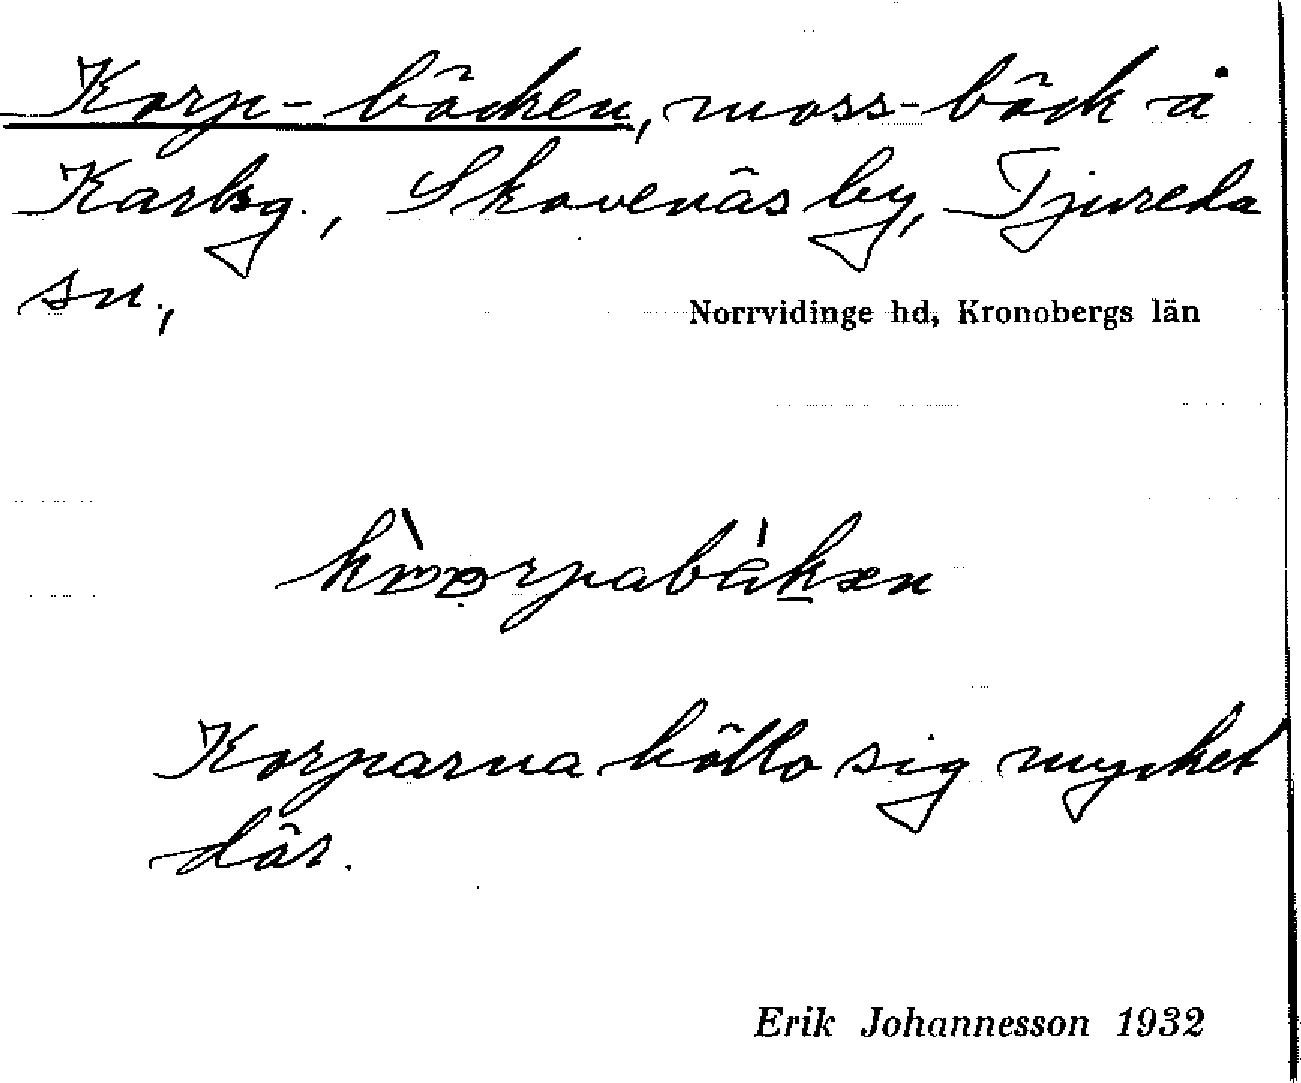 Korp-bäcken, moss-bäck å
Karlsg., Skavenäs by, Tjureda
sn.,
Norrvidinge hd, Kronobergs län
Korparna höllo sig mycket
där.
Erik Johannesson 1932